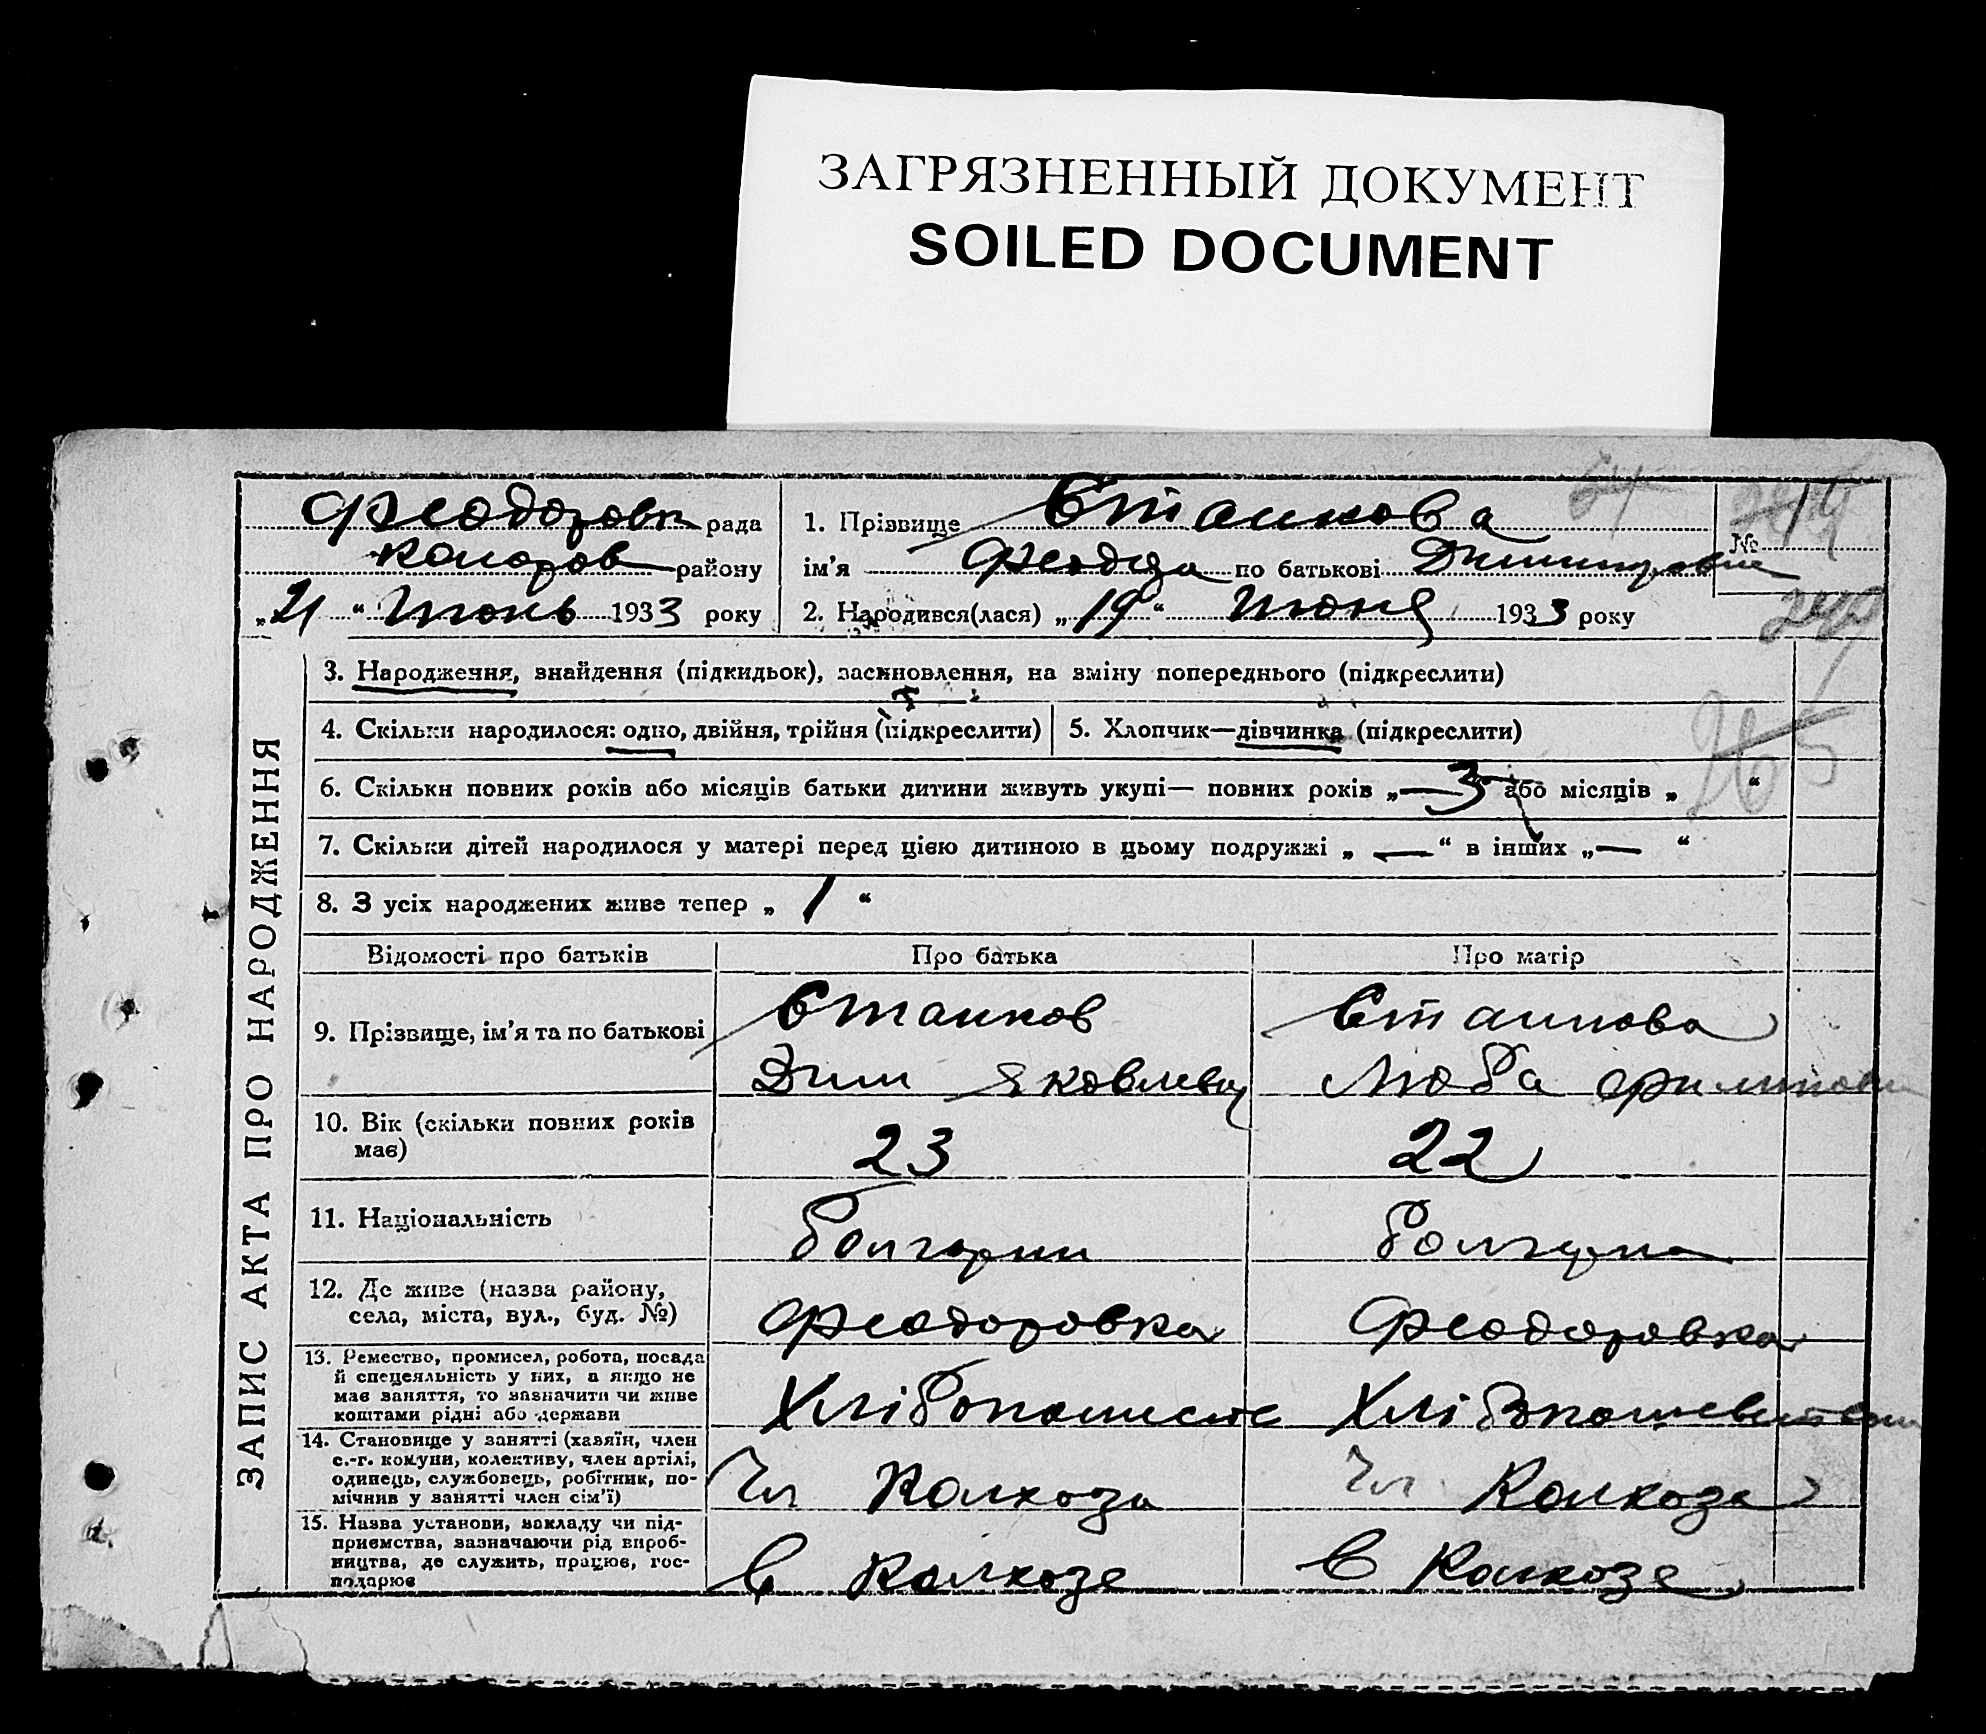 ЗАГРЯЗНЕННЫЙ ДОКУМЕНТ
SOILED DOCUMENT
ЗАПИС АКТА ПРО НАРОДЖЕННЯ
Феодоровк рада
Коларов району
„21“ Июнь 1933 року
1. Прізвище Станкова
ім'я по батькові
2. Народився(лася) „19“ Июня 1933 року
№ 14
3. Народження, знайдення (підкидьок), засиновлення, на зміну попереднього (підкреслити)
4. Скільки народилося: одно, двійня, трійня (підкреслити)
5. Хлопчик—дівчинка (підкреслити)
6. Скільки повних років або місяців батьки дитини живуть укупі— повних років „—3 або місяців „ “
7. Скільки дітей народилося у матері перед цією дитиною в цьому подружжі „ — “ в інших „— “
8. З усіх народжених живе тепер „ 1 “
Відомості про батьків
Про батька
Про матір
9. Прізвище, ім'я та по батькові
Станков
Яковлевич
Станкова
Люба
10. Вік (скільки повних років
має)
23
22
11. Національність
болгарин
болгарка
12. Де живе (назва району,
села, міста, вул., буд. №)
Феодоровка
Феодоровка
13. Ремество, промисел, робота, посада
й спецеяльність у них, а якщо не
має заняття, то зазначити чи живе
коштами рідні або держави
14. Становище у занятті (хазяїн, член
с.-г. комуни, колективу, член артілі,
одинець, службовець, робітник, по-
мічнив у занятті член сім'ї)
Чл Колхоза
Чл Колхоза
15. Назва установи, закладу чи під-
приємства, зазначаючи рід вироб-
ництва, де служить, працює, гос-
подарює
в Колхозе
в Колхозе